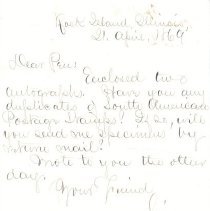 Rock Island Illinois,
21 April, 1869
Dear Pen:
Enclosed two
autographs. Have you any
duplicates of South American
Postage Stamps? If so, will
you send me specimens by
return mail?
Wrote to you the other
day.
Your friend,